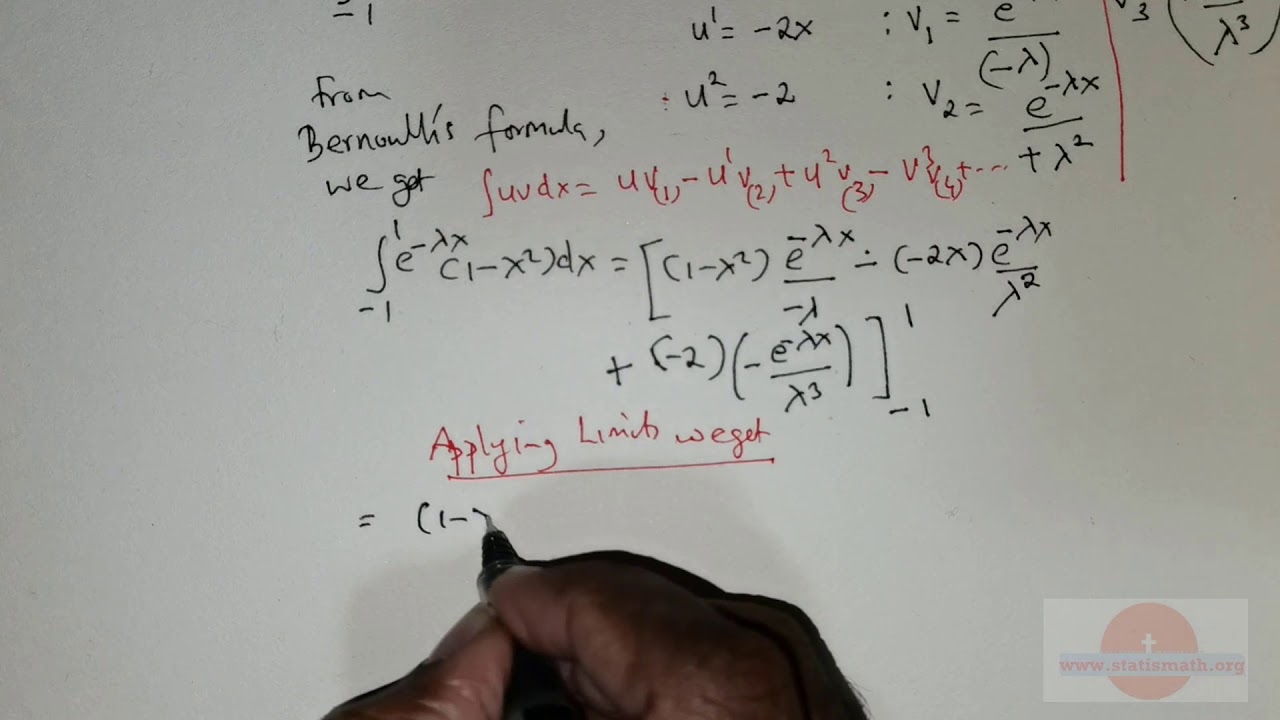 -1
u¹ = -2x : V₁ = e / (-λ)
V₃ ( / λ³ )
from
u² = -2 : V₂ = e^{-λx} / + λ²
Bernoulli's formula,
we get ∫uvdx = uV₍₁₎ - u¹V₍₂₎ + u²V₍₃₎ - V³V₍₄₎ + ...
∫_{-1}^{1} e^{-λx} (1-x²)dx = [ (1-x²) e^{-λx} / -λ - (-2x) e^{-λx} / λ²
+ (-2) ( - e^{-λx} / λ³ ) ]_{-1}^{1}
Applying Limits we get
= (1-
www.statismath.org